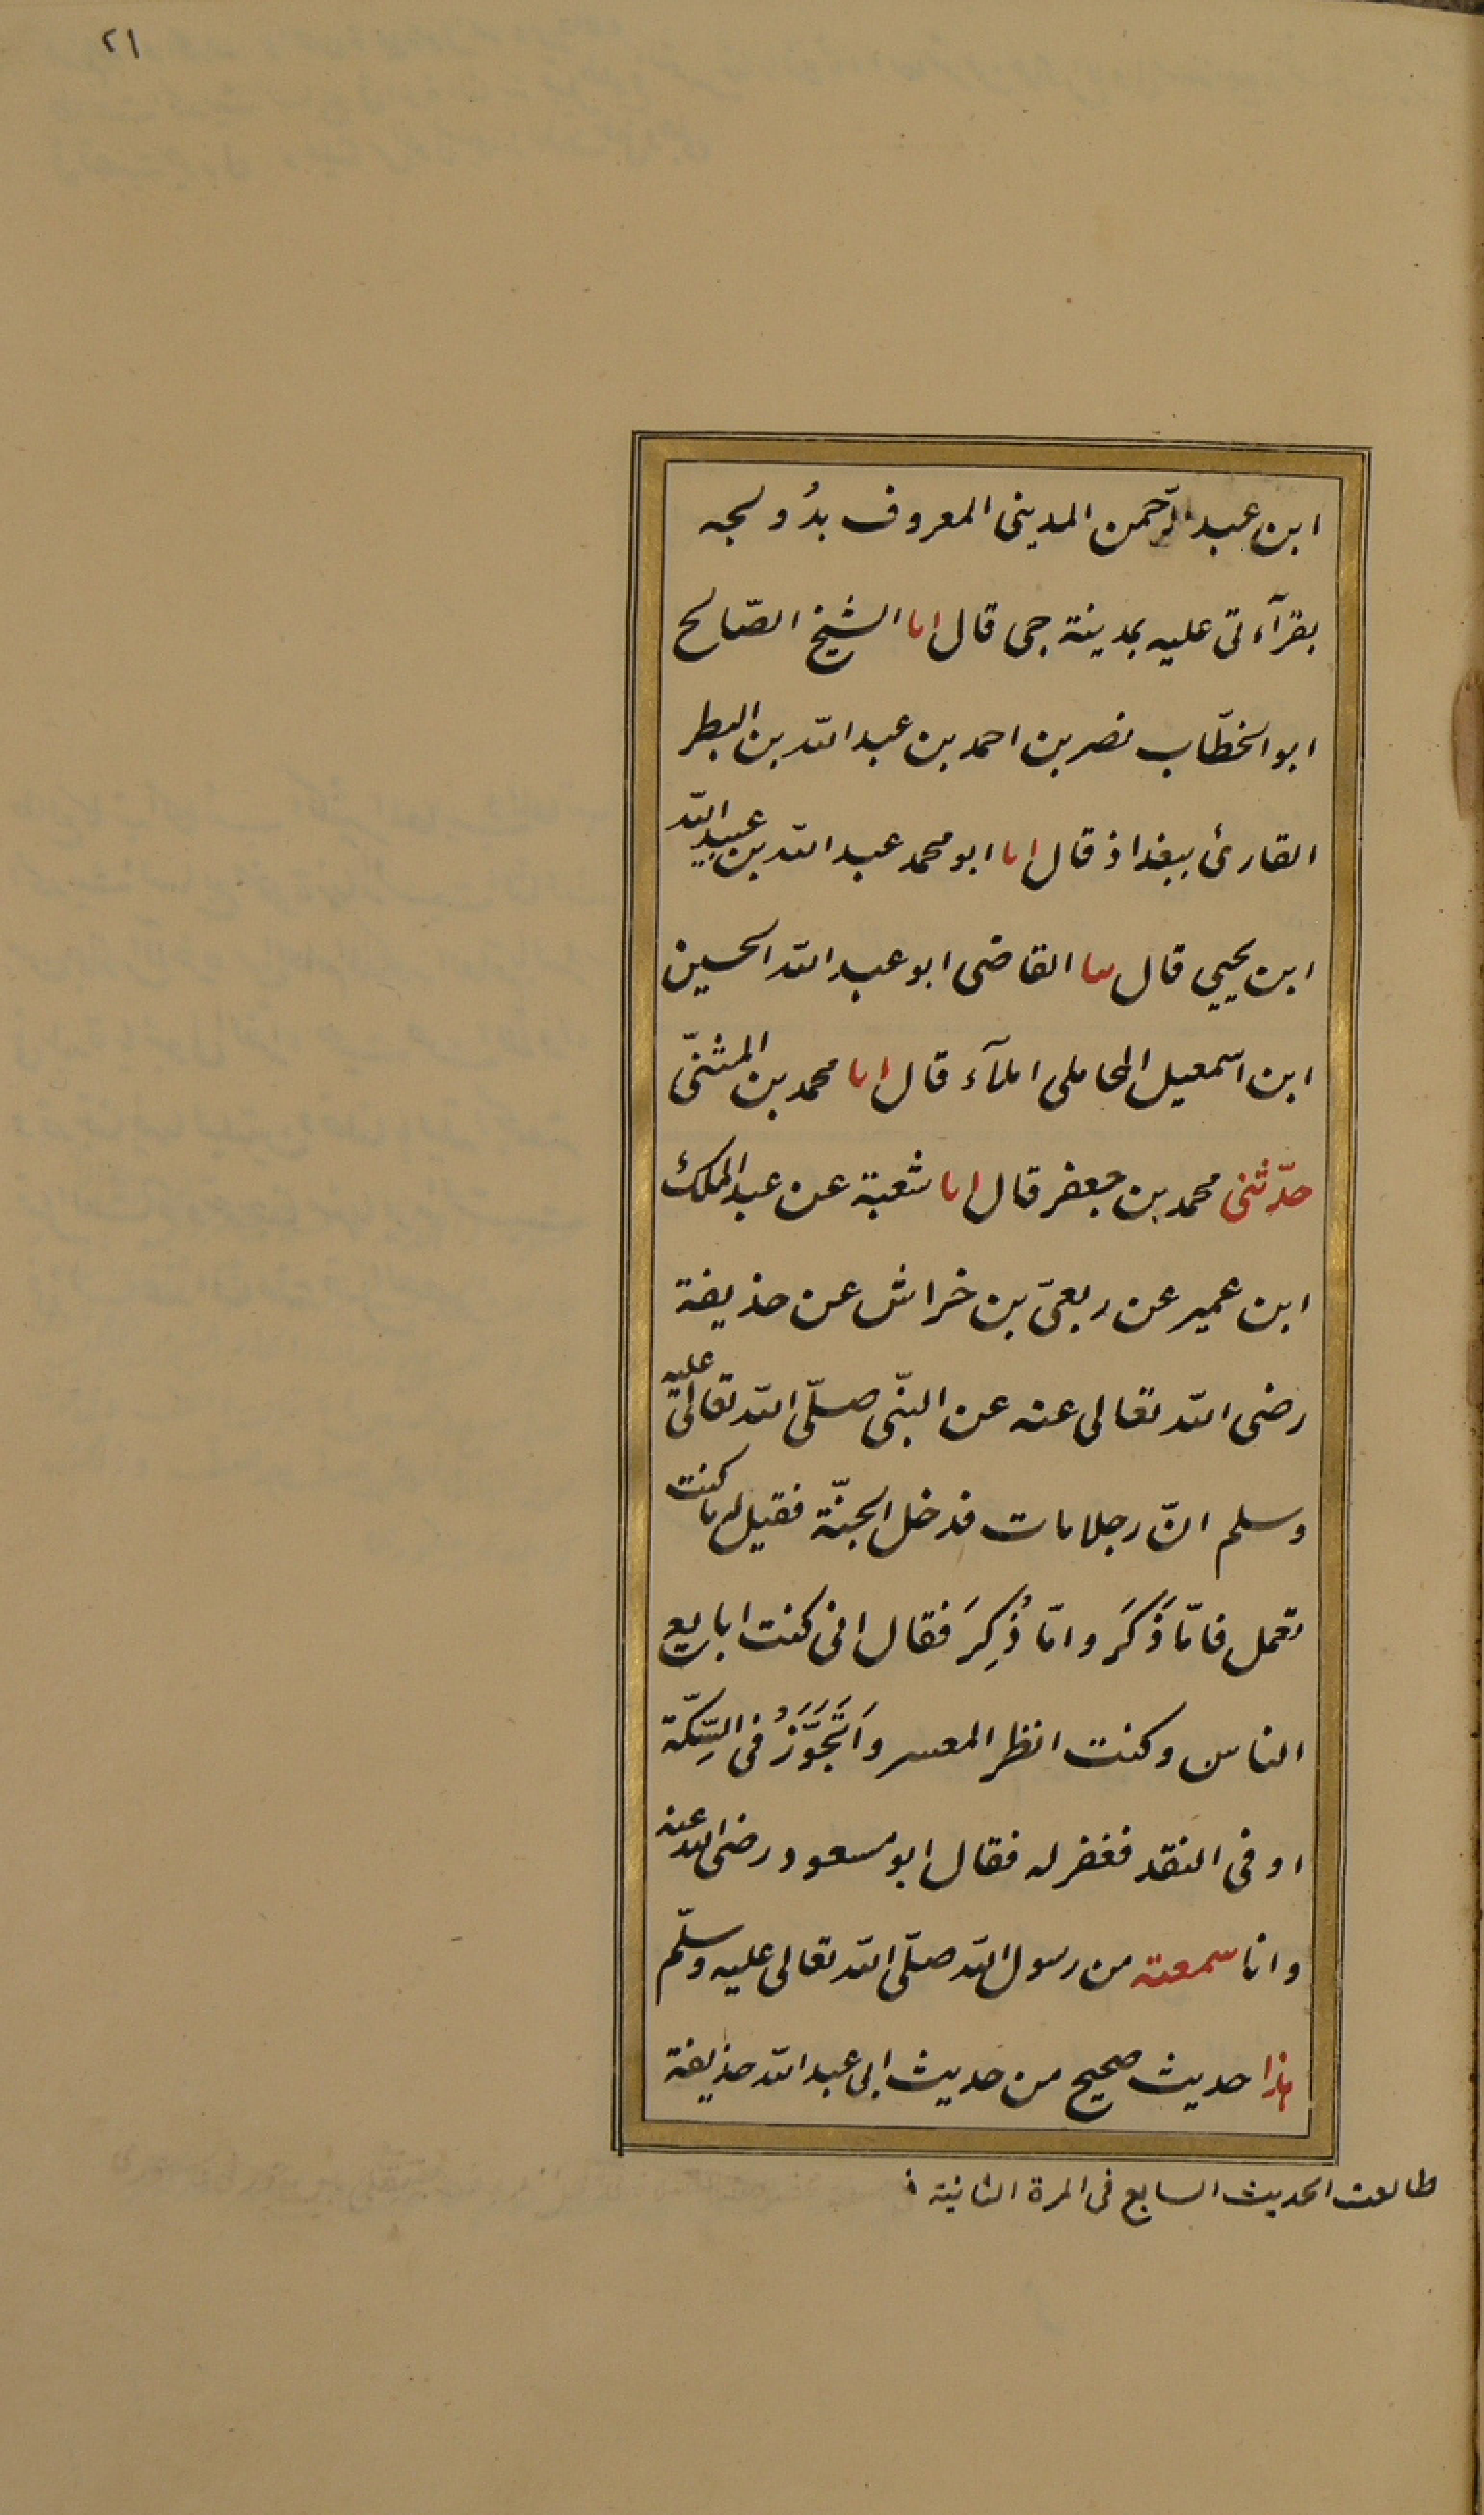 ٢١
ابن عبد الرّحمن المدينى المعروف بدُولجه
بقرآءتى عليه بمدينة جى قال انا الشيخ الصّالح
ابو الخطّاب نصر بن احمد بن عبد الله بن البطر
القارئ ببغداذ قال انا ابو محمد عبد الله بن عبيد الله
ابن يحيي قال ثنا القاضى ابو عبد الله الحسين
ابن اسمعيل المحاملى املآء قال انا محمد بن المثنّى
حدّثنى محمد بن جعفر قال انا شعبة عن عبد الملك
ابن عمير عن ربعىّ بن خراش عن حذيفة
رضى الله تعالى عنه عن النبّى صلّى الله تعالى عليه
وسلم انّ رجلا مات فدخل الجنّة فقيل له ما كنت
تعمل فامّا ذَكَرَ وامّا ذُكِرَ فقال انى كنت ابايع
الناس وكنت انظر المعسر واَتَجَوَّزُ فى السِّكّة
او فى النقد فغفر له فقال ابو مسعود رضى الله عنه
وانا سمعته من رسول الله صلّى الله تعالى عليه وسلّم
هذا حديث صحيح من حديث ابى عبد الله حذيفة
طالعت الحديث السابع فى المرة الثانية